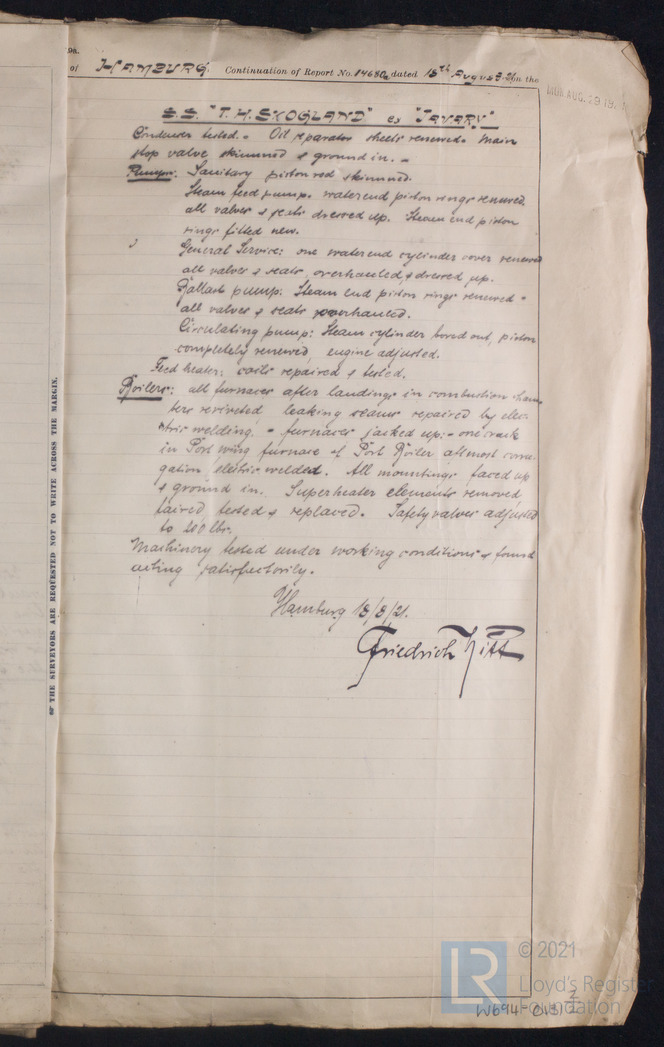 of HAMBURG. Continuation of Report No. 14680a dated 15th August 21 on the
MON. AUG. 29 19
S.S. "T. H. SKOGLAND" ex "JAVARY"
Condenser tested. - Oil separator sheets renewed. Main
stop valve skimmed & ground in. -
Pumps: Sanitary piston rod skimmed.
Steam feed pump. waterend piston rings renewed
all valves & seats dressed up. Steam end piston
rings fitted new.
General Service: one waterend cylinder cover renewed
all valves & seats, overhauled & dressed up.
Ballast pump: Steam end piston rings renewed -
all valves & seats overhauled.
Circulating pump: Steam cylinder bored out, piston
completely renewed, engine adjusted.
Feed heater: coils repaired & tested.
Boilers: all furnaces after landings in combustion cham-
bers reriveted leaking seams repaired by elec-
tric welding, - furnaces jacked up: - one crack
in Port wing furnace of Port Boiler atmost corru-
gation electric welded. All mountings faced up
& ground in. Superheater elements removed,
faired tested & replaced. Safety valves adjusted
to 200 lbs.
Machinery tested under working conditions & found
acting satisfactorily.
Hamburg 18/8/21.
Friedrich
OF THE SURVEYORS ARE REQUESTED NOT TO WRITE ACROSS THE MARGIN.
LR © 2021
Lloyd's Register
Foundation
W694-0131 2/2